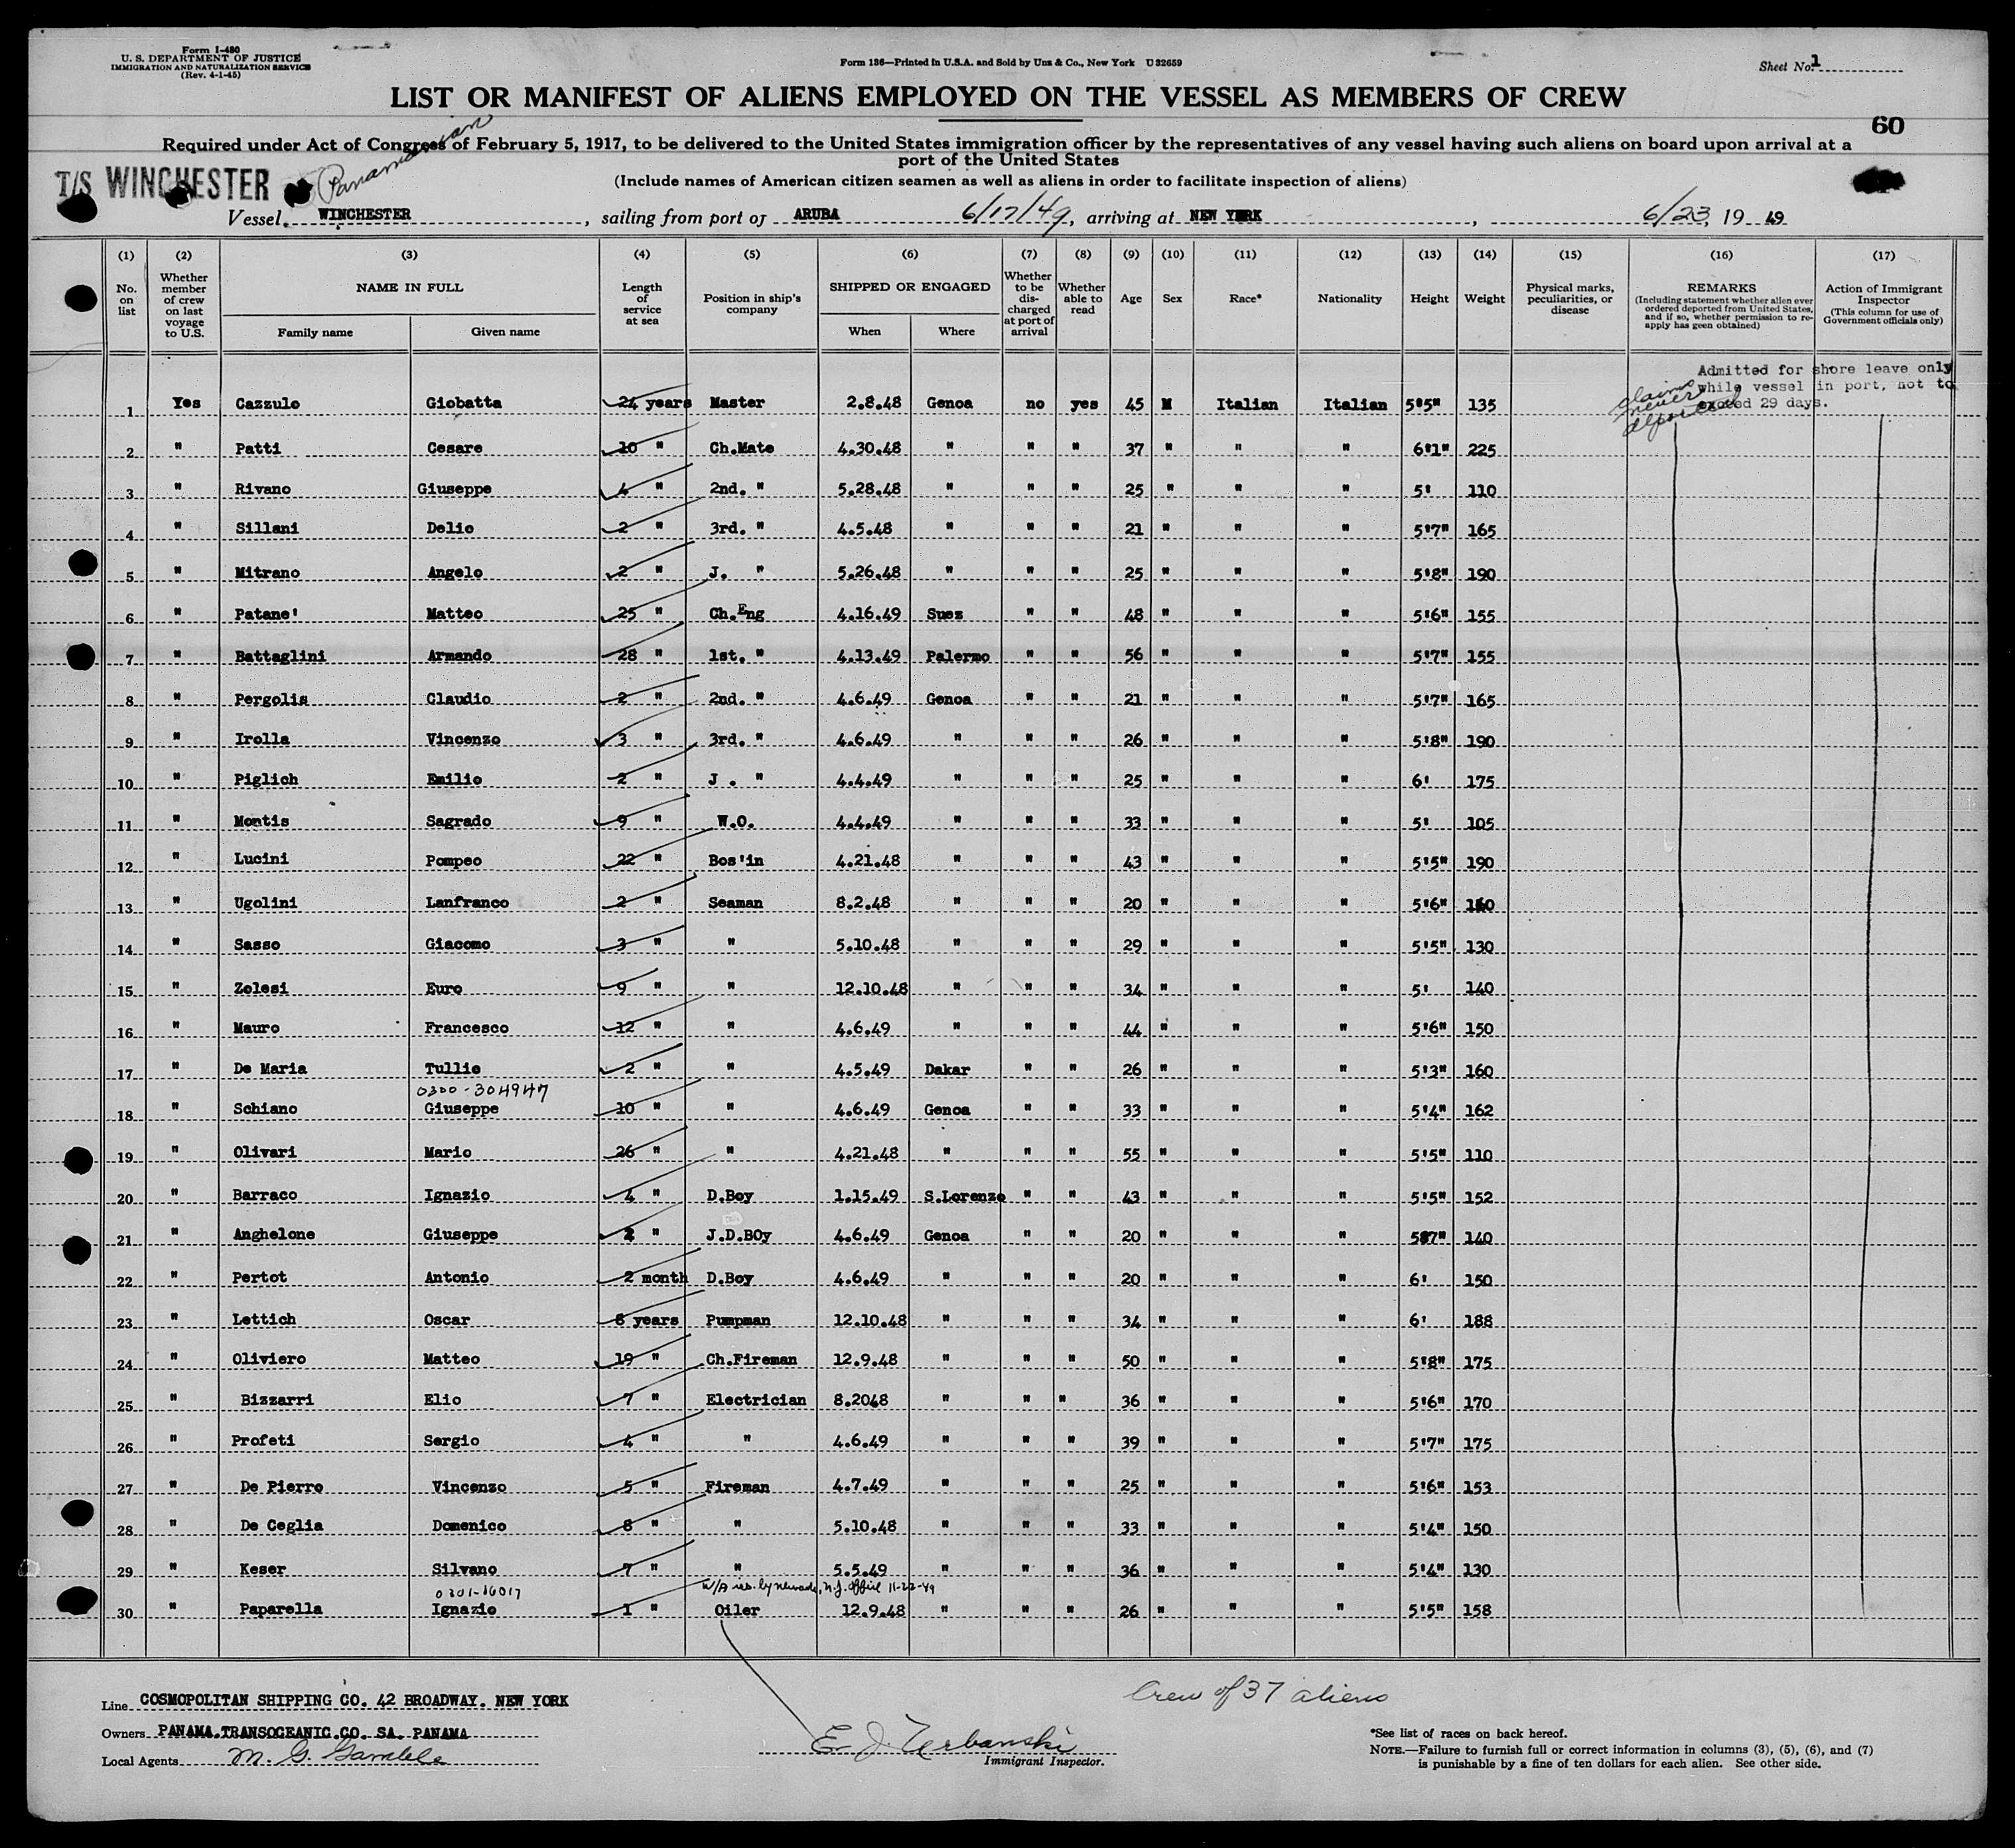 Form I-480
U. S. DEPARTMENT OF JUSTICE
IMMIGRATION AND NATURALIZATION SERVICE
(Rev. 4-1-45)
Form 136—Printed in U.S.A. and Sold by Unz & Co., New York U 32659
Sheet No. 1
LIST OR MANIFEST OF ALIENS EMPLOYED ON THE VESSEL AS MEMBERS OF CREW
60
Required under Act of Congress of February 5, 1917, to be delivered to the United States immigration officer by the representatives of any vessel having such aliens on board upon arrival at a
port of the United States
T/S WINCHESTER Panamanian
(Include names of American citizen seamen as well as aliens in order to facilitate inspection of aliens)
Vessel WINCHESTER, sailing from port of ARUBA 6/17/49, arriving at NEW YORK, 6/23, 19 49
(1) (2) (3) (4) (5) (6) (7) (8) (9) (10) (11) (12) (13) (14) (15) (16) (17)
No. on list Whether member of crew on last voyage to U.S. NAME IN FULL Family name Given name Length of service at sea Position in ship's company SHIPPED OR ENGAGED When Where Whether to be discharged at port of arrival Whether able to read Age Sex Race* Nationality Height Weight Physical marks, peculiarities, or disease REMARKS (Including statement whether alien ever ordered deported from United States, and if so, whether permission to re-apply has geen obtained) Action of Immigrant Inspector (This column for use of Government officials only)
Admitted for shore leave only
while vessel in port, not to
exceed 29 days.
claims never deported
1 Yes Cazzulo Giobatta 24 years Master 2.8.48 Genoa no yes 45 M Italian Italian 5'5" 135
2 " Patti Cesare 10 " Ch.Mate 4.30.48 " " " 37 " " " 6'1" 225
3 " Rivano Giuseppe 4 " 2nd. " 5.28.48 " " " 25 " " " 5' 110
4 " Sillani Delio 2 " 3rd. " 4.5.48 " " " 21 " " " 5'7" 165
5 " Mitrano Angelo 2 " J. " 5.26.48 " " " 25 " " " 5'8" 190
6 " Patane' Matteo 25 " Ch.Eng 4.16.49 Suez " " 48 " " " 5'6" 155
7 " Battaglini Armando 28 " 1st. " 4.13.49 Palermo " " 56 " " " 5'7" 155
8 " Pergolis Claudio 2 " 2nd. " 4.6.49 Genoa " " 21 " " " 5'7" 165
9 " Irolla Vincenzo 3 " 3rd. " 4.6.49 " " " 26 " " " 5'8" 190
10 " Piglich Emilio 2 " J . " 4.4.49 " " " 25 " " " 6' 175
11 " Montis Sagrado 9 " W.O. 4.4.49 " " " 33 " " " 5' 105
12 " Lucini Pompeo 22 " Bos'in 4.21.48 " " " 43 " " " 5'5" 190
13 " Ugolini Lanfranco 2 " Seaman 8.2.48 " " " 20 " " " 5'6"
14 " Sasso Giacomo 3 " " 5.10.48 " " " 29 " " " 5'5" 130
15 " Zolesi Euro 9 " " 12.10.48 " " " 34 " " " 5' 140
16 " Mauro Francesco 12 " " 4.6.49 " " " 44 " " " 5'6" 150
17 " De Maria Tullio 2 " " 4.5.49 Dakar " " 26 " " " 5'3" 160
0300-304947
18 " Schiano Giuseppe 10 " " 4.6.49 Genoa " " 33 " " " 5'4" 162
19 " Olivari Mario 26 " " 4.21.48 " " " 55 " " " 5'5" 110
20 " Barraco Ignazio 4 " D.Boy 1.15.49 S.Lorenzo " " 43 " " " 5'5" 152
21 " Anghelone Giuseppe " J.D.BOy 4.6.49 Genoa " " 20 " " " 587" 140
22 " Pertot Antonio 2 month D.Boy 4.6.49 " " " 20 " " " 6' 150
23 " Lettich Oscar 8 years Pumpman 12.10.48 " " " 34 " " " 6' 188
24 " Oliviero Matteo 19 " Ch.Fireman 12.9.48 " " " 50 " " " 5'8" 175
25 " Bizzarri Elio 7 " Electrician 8.2048 " " " 36 " " " 5'6" 170
26 " Profeti Sergio 4 " " 4.6.49 " " " 39 " " " 5'7" 175
27 " De Pierro Vincenzo 5 " Fireman 4.7.49 " " " 25 " " " 5'6" 153
28 " De Ceglia Domenico 8 " " 5.10.48 " " " 33 " " " 5'4" 150
29 " Keser Silvano 7 " " 5.5.49 " " " 36 " " " 5'4" 130
0301-16017 W/A N.J. office 11-22-49
30 " Paparella Ignazio 1 " Oiler 12.9.48 " " " 26 " " " 5'5" 158
Line COSMOPOLITAN SHIPPING CO. 42 BROADWAY. NEW YORK
Crew of 37 aliens
Owners PANAMA.TRANSOCEANIC.CO. SA. PANAMA
Local Agents M. G. Gamble
E. J. Urbanski
Immigrant Inspector.
*See list of races on back hereof.
NOTE.—Failure to furnish full or correct information in columns (3), (5), (6), and (7)
is punishable by a fine of ten dollars for each alien. See other side.